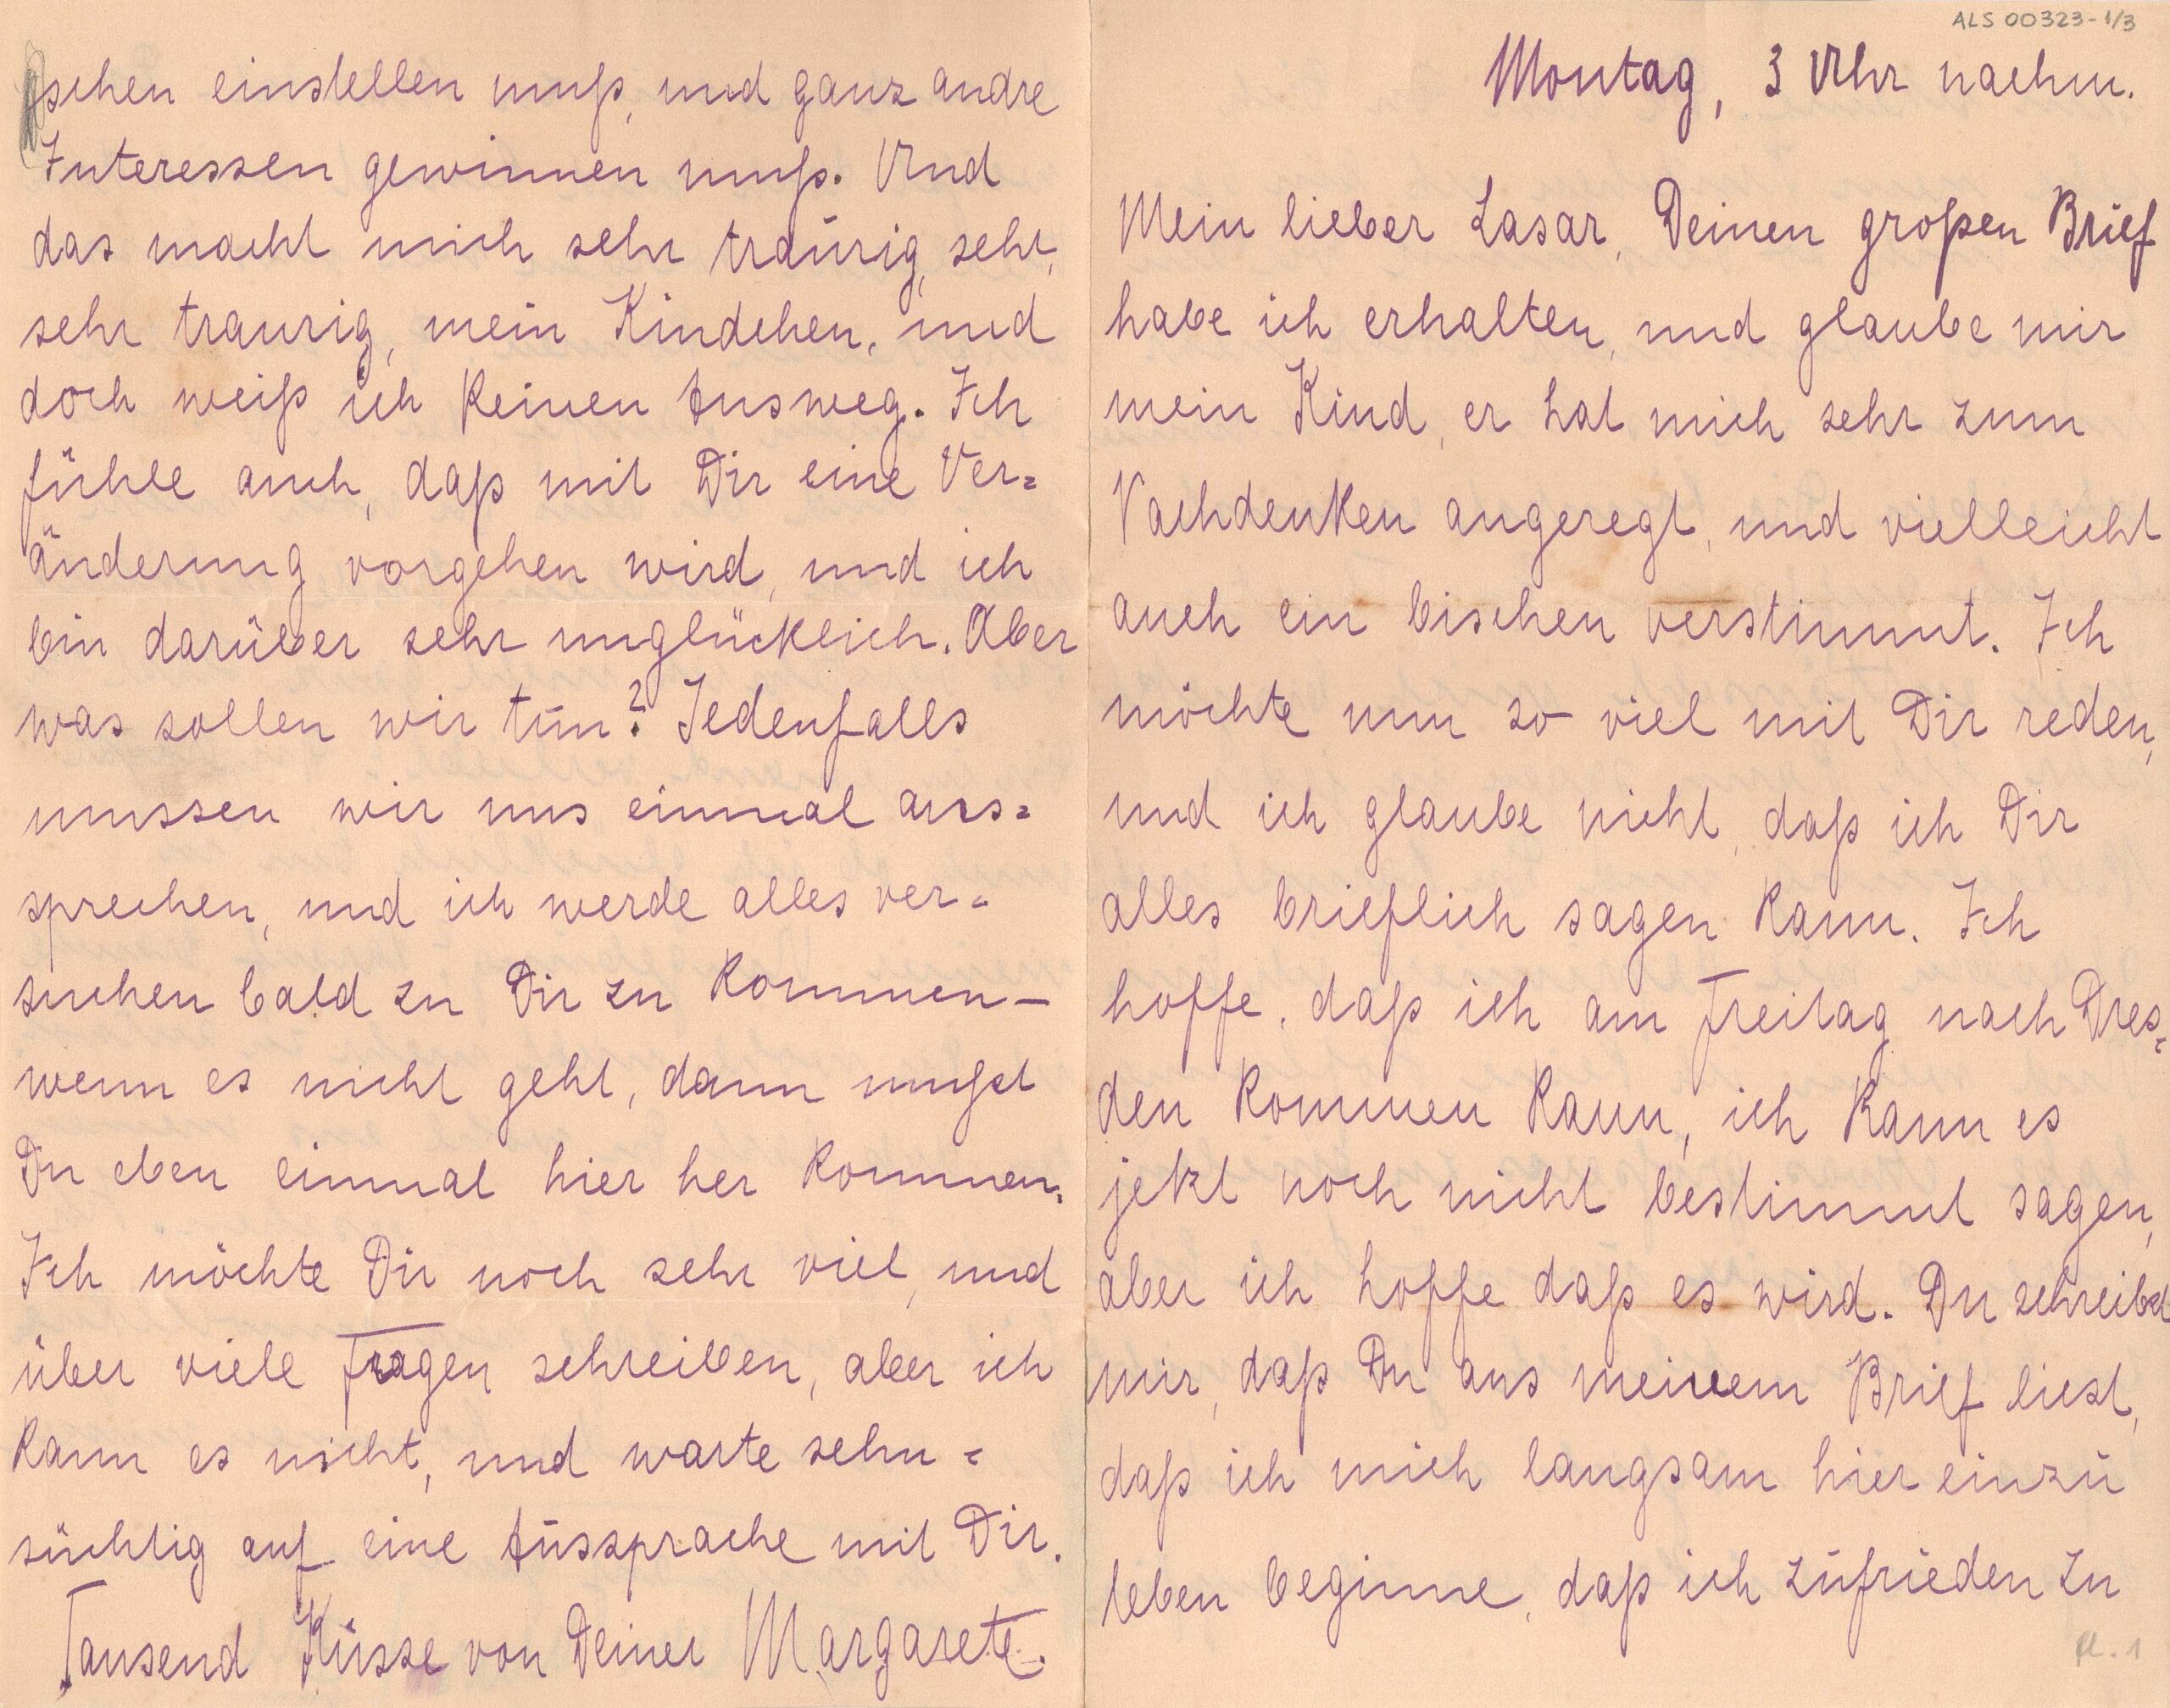 ALS 00323-1/3
Montag, 3 Uhr nachm.
Mein lieber Lasar, Deinen großen Brief
habe ich erhalten, und glaube mir
mein Kind, er hat mich sehr zum
Nachdenken angeregt, und vielleicht
auch ein bischen verstimmt. Ich
möchte nun so viel mit Dir reden,
und ich glaube nicht, daß ich Dir
alles brieflich sagen kann. Ich
hoffe, daß ich am Freitag nach Dres=
den kommen kann, ich kann es
jetzt noch nicht bestimmt sagen,
aber ich hoffe daß es wird. Du schreibst
mir, daß Du aus meinem Brief liest,
daß ich mich langsam hier einzu
leben beginne, daß ich zufrieden zu
fl. 1
schen einstellen muß, und ganz andre
Interessen gewinnen muß. Und
das macht mich sehr traurig, sehr,
sehr traurig, mein Kindchen, und
doch weiß ich keinen Ausweg. Ich
fühle auch, daß mit Dir eine Ver=
änderung vorgehen wird, und ich
bin darüber sehr unglücklich. Aber
was sollen wir tun? Jedenfalls
mussen wir uns einmal aus=
sprechen, und ich werde alles ver=
suchen bald zu Dir zu kommen—
wenn es nicht geht, dann mußt
Du eben einmal hier her kommen.
Ich möchte Dir noch sehr viel, und
über viele Fragen schreiben, aber ich
kann es nicht, und warte sehn=
süchtig auf eine Aussprache mit Dir.
Tausend Küsse von Deiner Margarete.